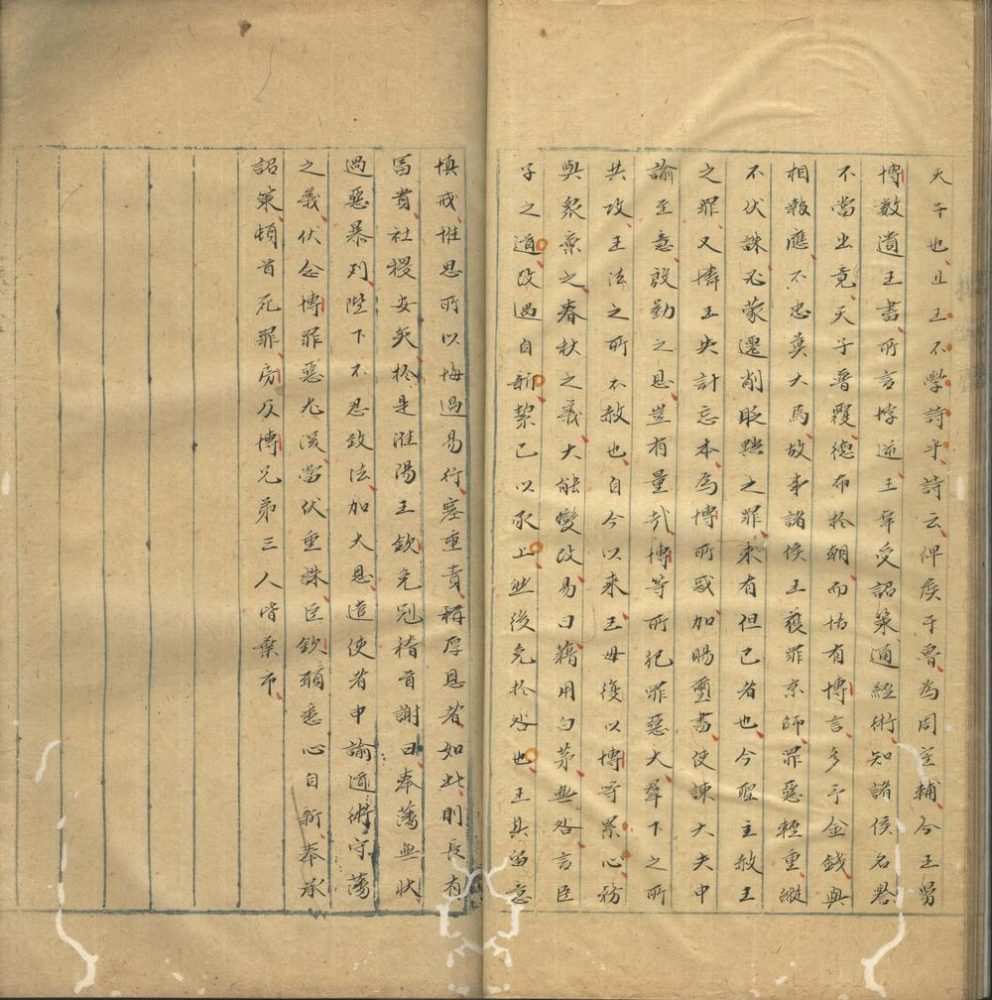 天子也且王不學詩乎詩云俾侯于魯為周室輔今王舅
博數遺王書所言悖逆王幸受詔策通經術知諸侯名譽
不當出竟天子普覆德布於朝而恬有博言多予金錢與
相報應不忠莫大焉故事諸侯王獲罪京師罪惡輕重縱
不伏誅必蒙遷削貶黜之罪未有但已者也今聖主赦王
之罪又憐王失計忘本為博所惑加賜璽書使諫大夫申
諭至意殷勤之恩豈有量哉博等所犯罪惡大羣下之所
共攻王法之所不赦也自今以來王毋復以博等累心務
與衆棄之春秋之義大能變改易曰藉用白茅無咎言臣
子之道改過自新絜己以承上然後免於咎也王其留意
慎戒惟思所以悔過易行塞重責稱厚恩者如此則長有
富貴社稷安矣於是淮陽王欽免冠稽首謝曰奉藩無狀
過惡暴列陛下不忍致法加大恩遣使者申諭道術守藩
之義伏念博罪惡尤深當伏重誅臣欽願悉心自新奉承
詔策頓首死罪房及博兄弟三人皆棄市